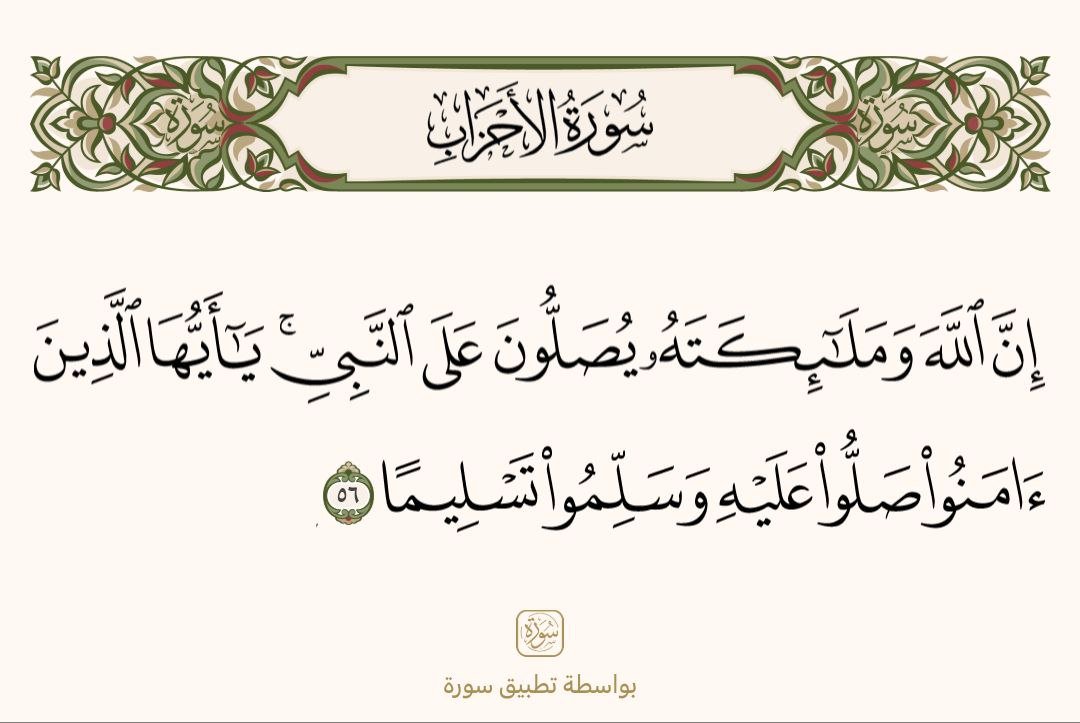 سُورَةُ الأَحْزَابِ
سُورَة
سُورَة
إِنَّ ٱللَّهَ وَمَلَـٰٓئِكَتَهُۥ يُصَلُّونَ عَلَى ٱلنَّبِىِّ ۚ يَـٰٓأَيُّهَا ٱلَّذِينَ
ءَامَنُوا۟ صَلُّوا۟ عَلَيْهِ وَسَلِّمُوا۟ تَسْلِيمًا ٥٦
سُورَة
بواسطة تطبيق سورة